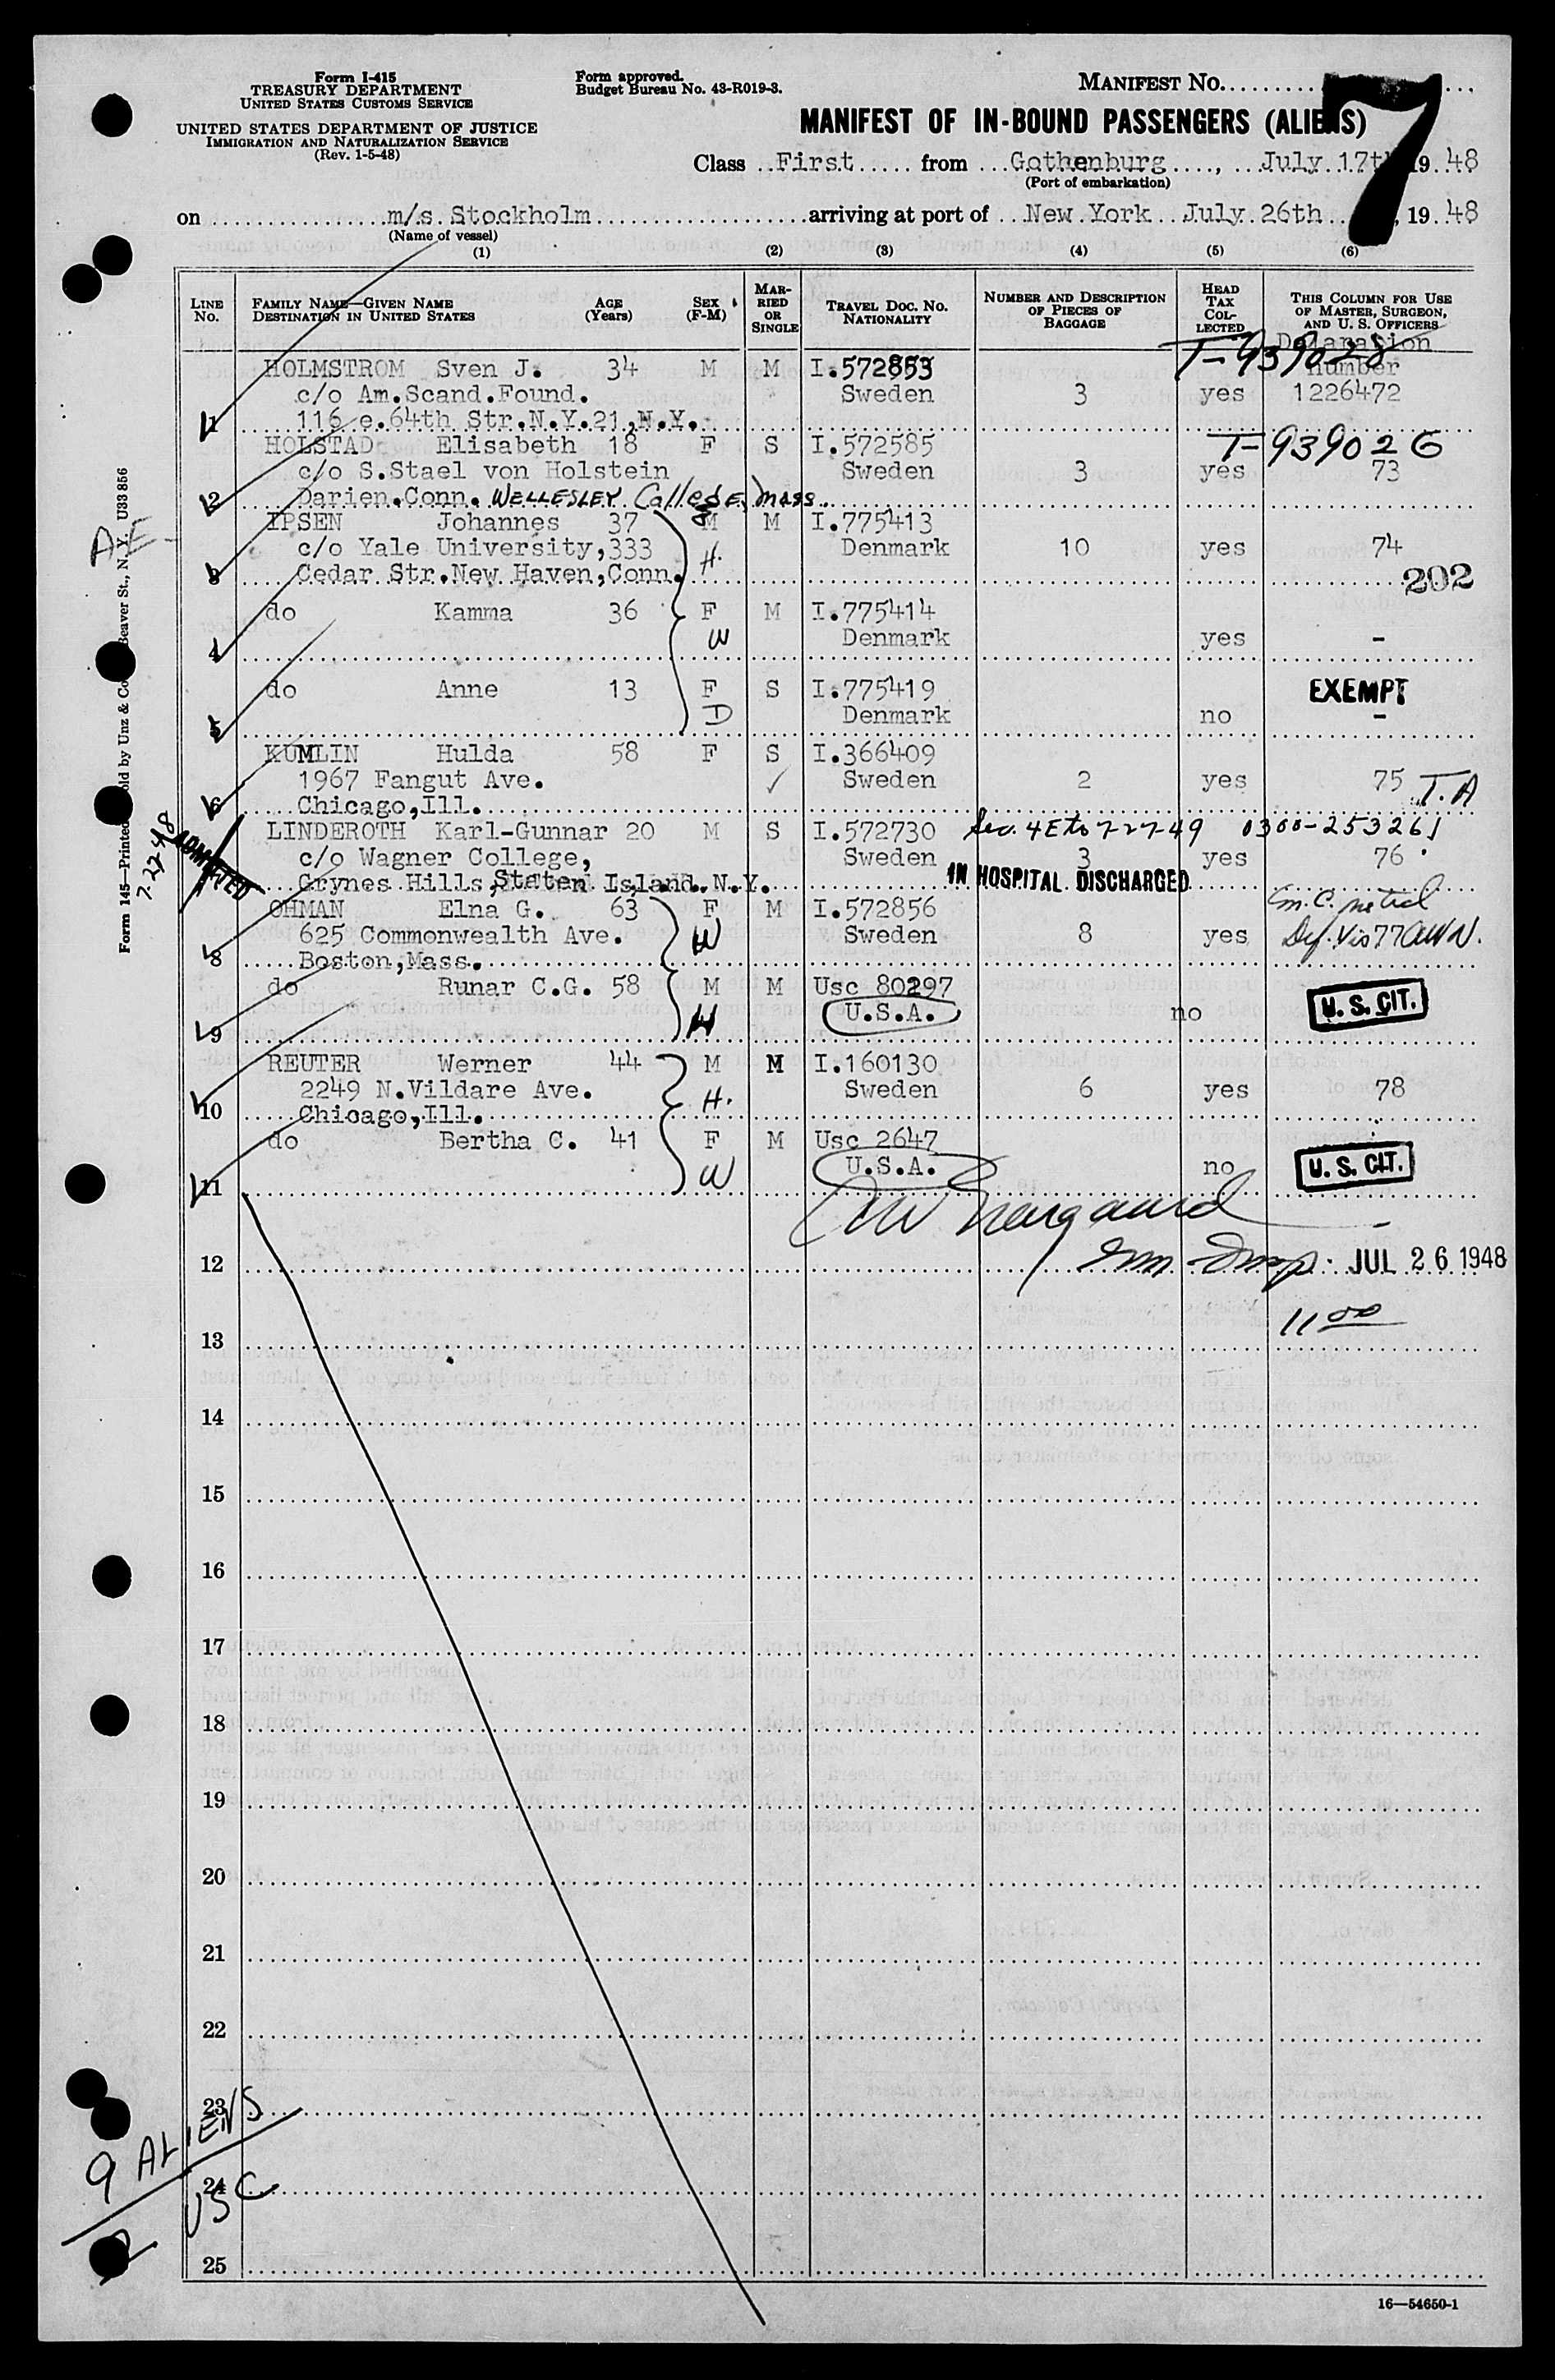 Form I-415
TREASURY DEPARTMENT
UNITED STATES CUSTOMS SERVICE
UNITED STATES DEPARTMENT OF JUSTICE
IMMIGRATION AND NATURALIZATION SERVICE
(Rev. 1-5-48)
Form approved.
Budget Bureau No. 43-R019-3.
MANIFEST NO. 7
MANIFEST OF IN-BOUND PASSENGERS (ALIENS)
Class First from Gothenburg, July 17th 19 48
(Port of embarkation)
on m/s. Stockholm arriving at port of New York July 26th, 19 48
(Name of vessel)
(1) (2) (3) (4) (5) (6)
LINE NO.
FAMILY NAME—GIVEN NAME
DESTINATION IN UNITED STATES
AGE (Years)
SEX (F-M)
MARRIED OR SINGLE
TRAVEL DOC. NO.
NATIONALITY
NUMBER AND DESCRIPTION OF PIECES OF BAGGAGE
HEAD TAX COLLECTED
THIS COLUMN FOR USE OF MASTER, SURGEON, AND U. S. OFFICERS
Declaration
T-939028
number
HOLMSTROM Sven J. 34 M M I.572853
c/o Am.Scand.Found. Sweden 3 yes 1226472
1 116 e.64th Str.N.Y.21,N.Y.
HOLSTAD Elisabeth 18 F S I.572585 T-939026
c/o S.Stael von Holstein Sweden 3 yes 73
2 Darien.Conn. WELLESLEY College, Mass.
IPSEN Johannes 37 M M I.775413
c/o Yale University,333 H. Denmark 10 yes 74
3 Cedar Str.New Haven,Conn. 202
do Kamma 36 F M I.775414
4 W Denmark yes -
do Anne 13 F S I.775419 EXEMPT
5 D Denmark no -
KUMLIN Hulda 58 F S I.366409
1967 Fangut Ave. Sweden 2 yes 75 T.A
6 Chicago,Ill.
LINDEROTH Karl-Gunnar 20 M S I.572730 Sec. 4E to 7-27-49 0300-253261
c/o Wagner College, Sweden 3 yes 76
Grynes Hills,Staten Island.N.Y. IN HOSPITAL DISCHARGED
ADMITTED
OHMAN Elna G. 63 F M I.572856
625 Commonwealth Ave. W Sweden 8 yes Def. Vis 77 AWN.
8 Boston,Mass.
do Runar C.G. 58 M M Usc 80297
9 H U.S.A. no U. S. CIT.
REUTER Werner 44 M M I.160130
2249 N.Vildare Ave. H. Sweden 6 yes 78
10 Chicago,Ill.
do Bertha C. 41 F M Usc 2647
11 W U.S.A. no U. S. CIT.
12 JUL 26 1948
11 00
13
14
15
16
17
18
19
20
21
22
23
24
25
9 ALIENS
2 USC
16—54650-1